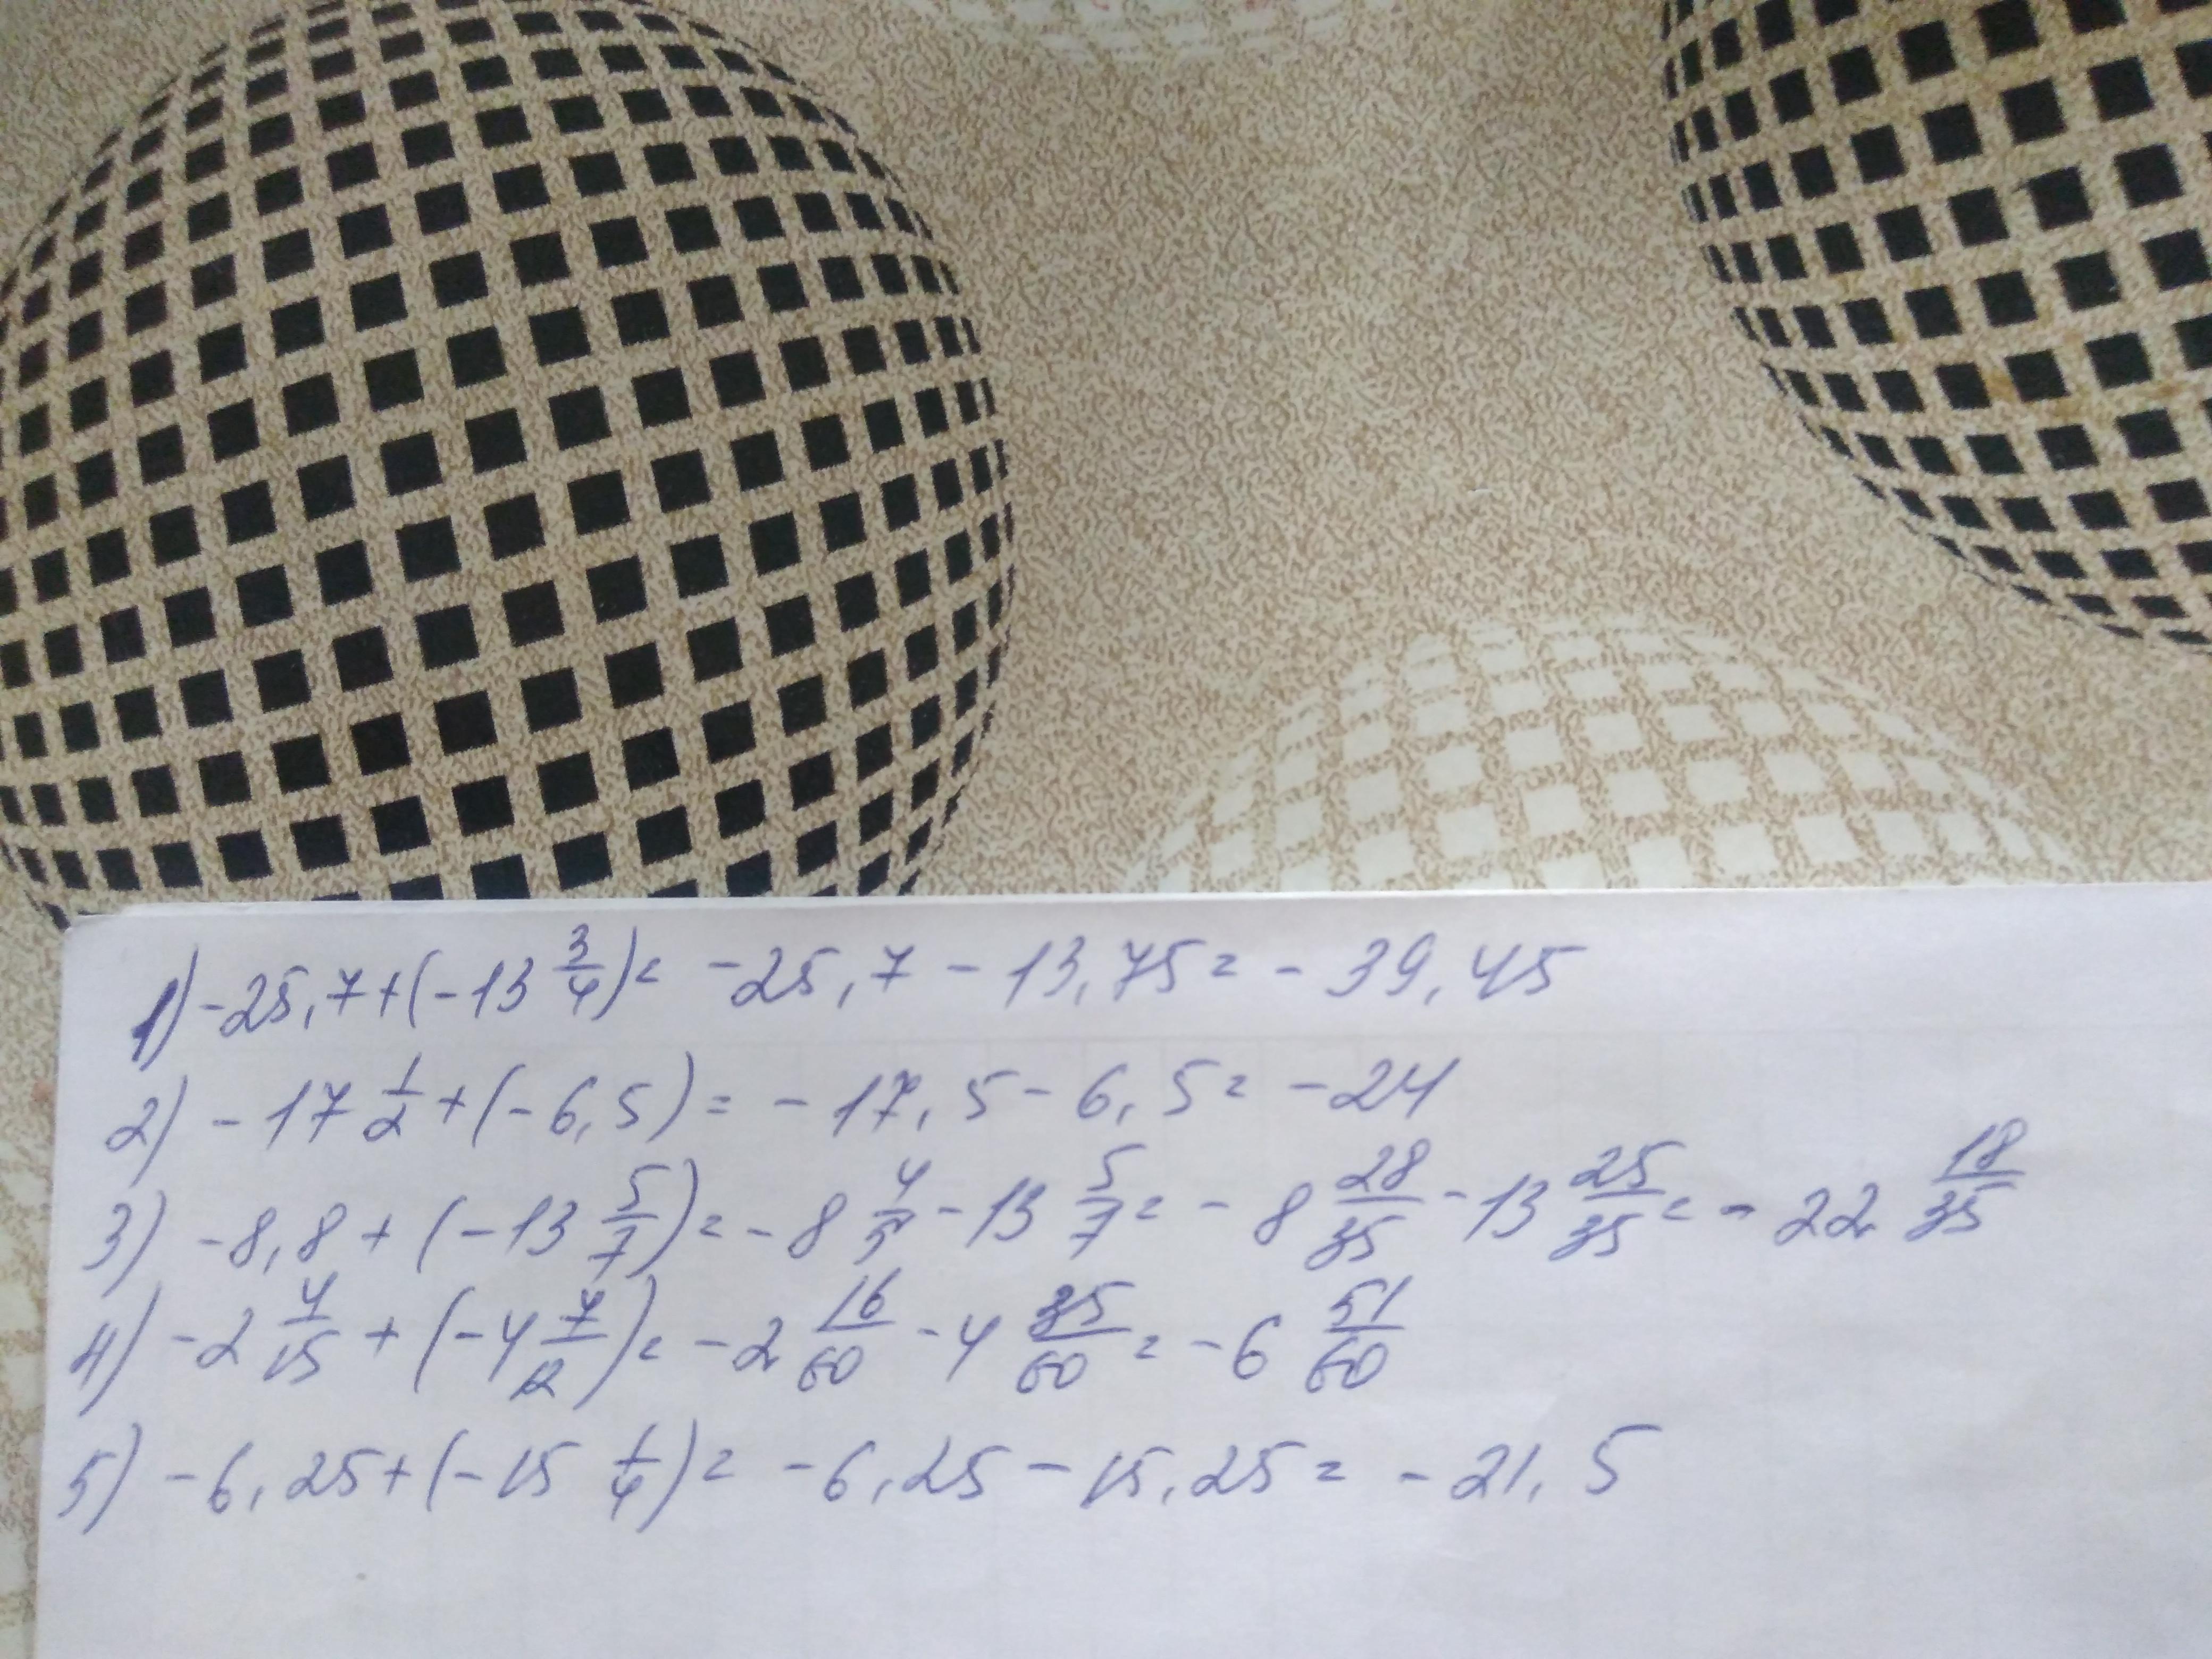 1) -25,7+(-13 3/4)= -25,7 - 13,75= - 39,45
2) - 17 1/2 +(-6,5) = - 17,5 - 6,5= -24
3) -8,8 + (-13 5/7)= - 8 4/5 - 13 5/7 = - 8 28/35 - 13 25/35 = - 22 18/35
4) -2 4/15 + (-4 7/12)= -2 16/60 - 4 35/60 = - 6 51/60
5) -6,25+(-15 1/4)= -6,25 - 15,25 = - 21,5